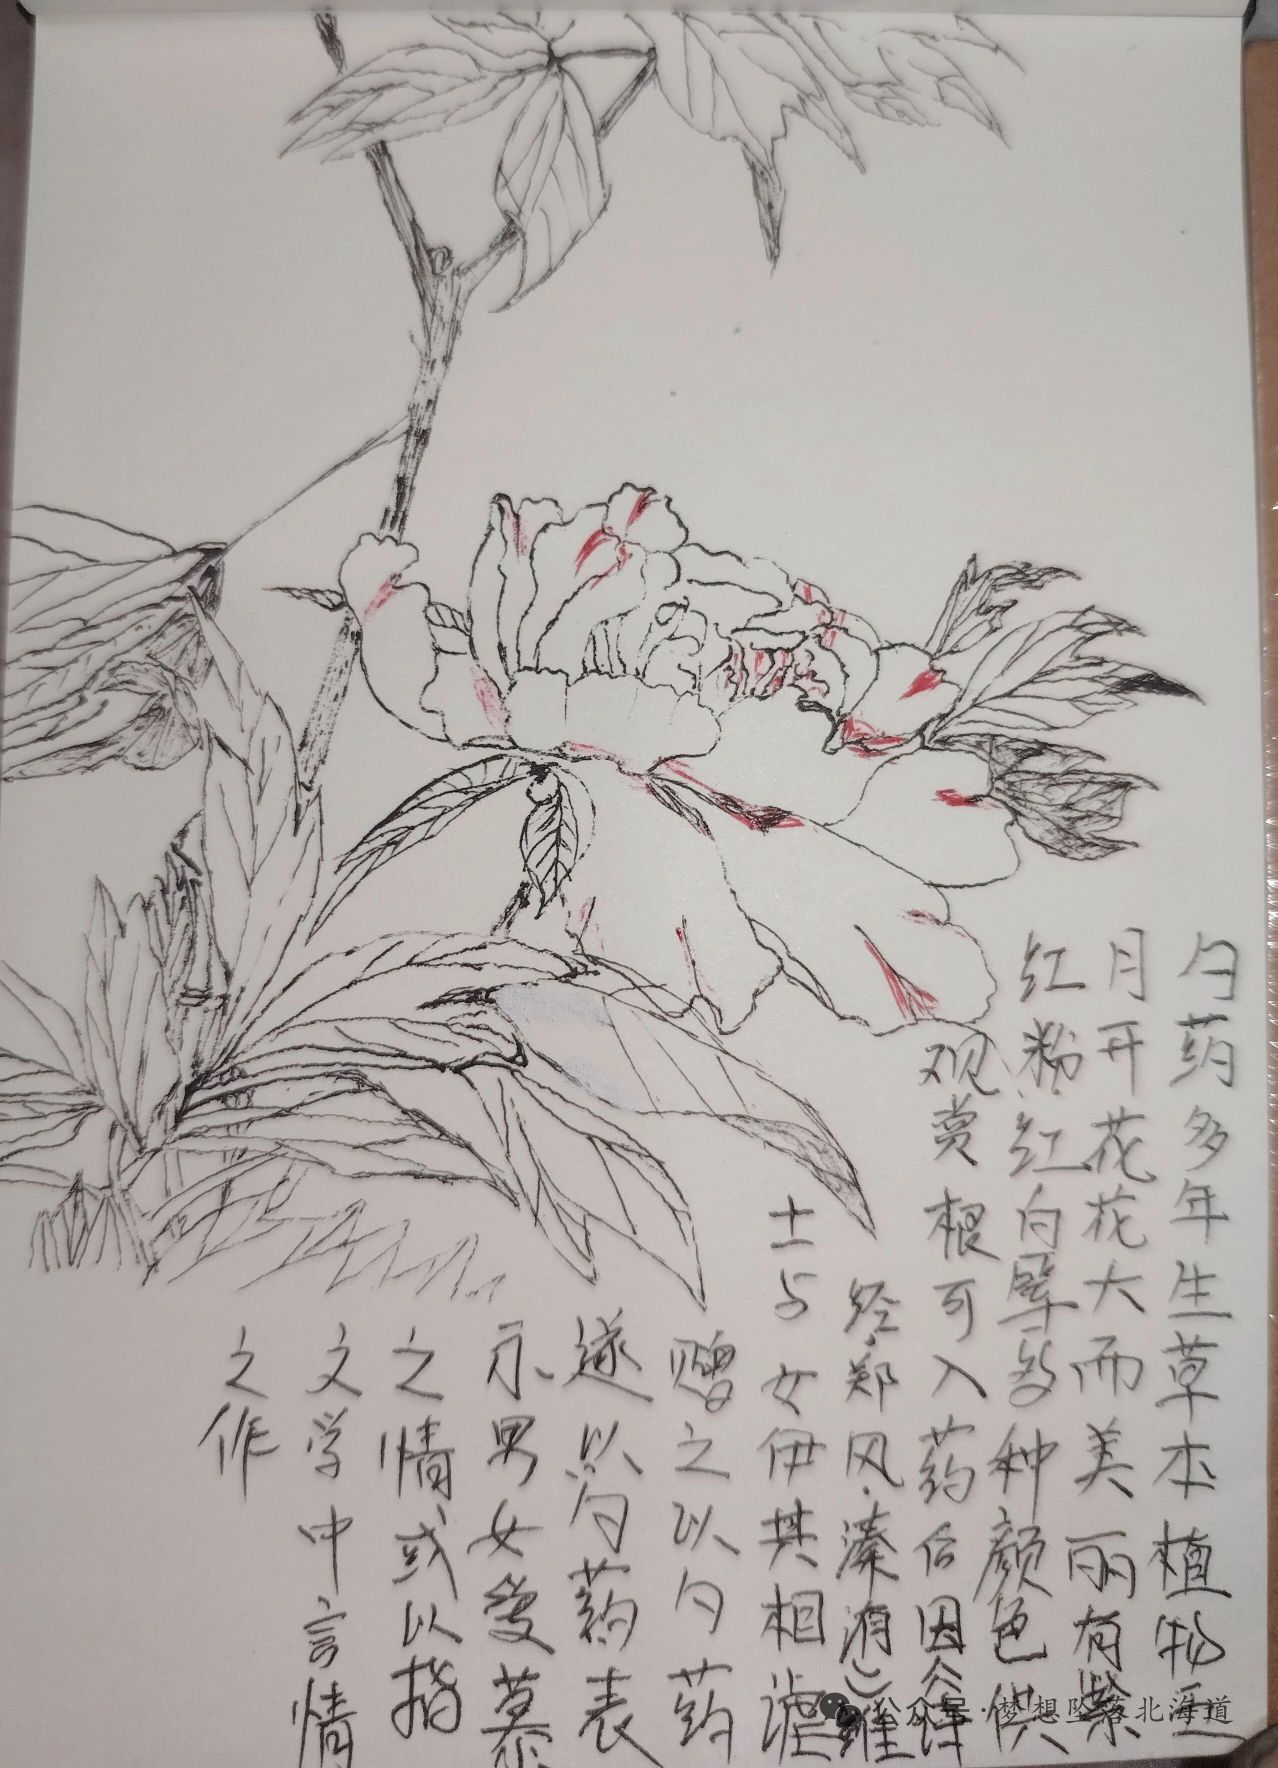 勺药多年生草本植物五
月开花花大而美丽有紫
红粉红白等多种颜色供
观赏根可入药后因《诗
经·郑风·溱洧》维
士与女伊其相谑
赠之以勺药
遂以勺药表
示男女爱慕
之情或以指
文学中言情
之作
公众号·梦想坠落北海道